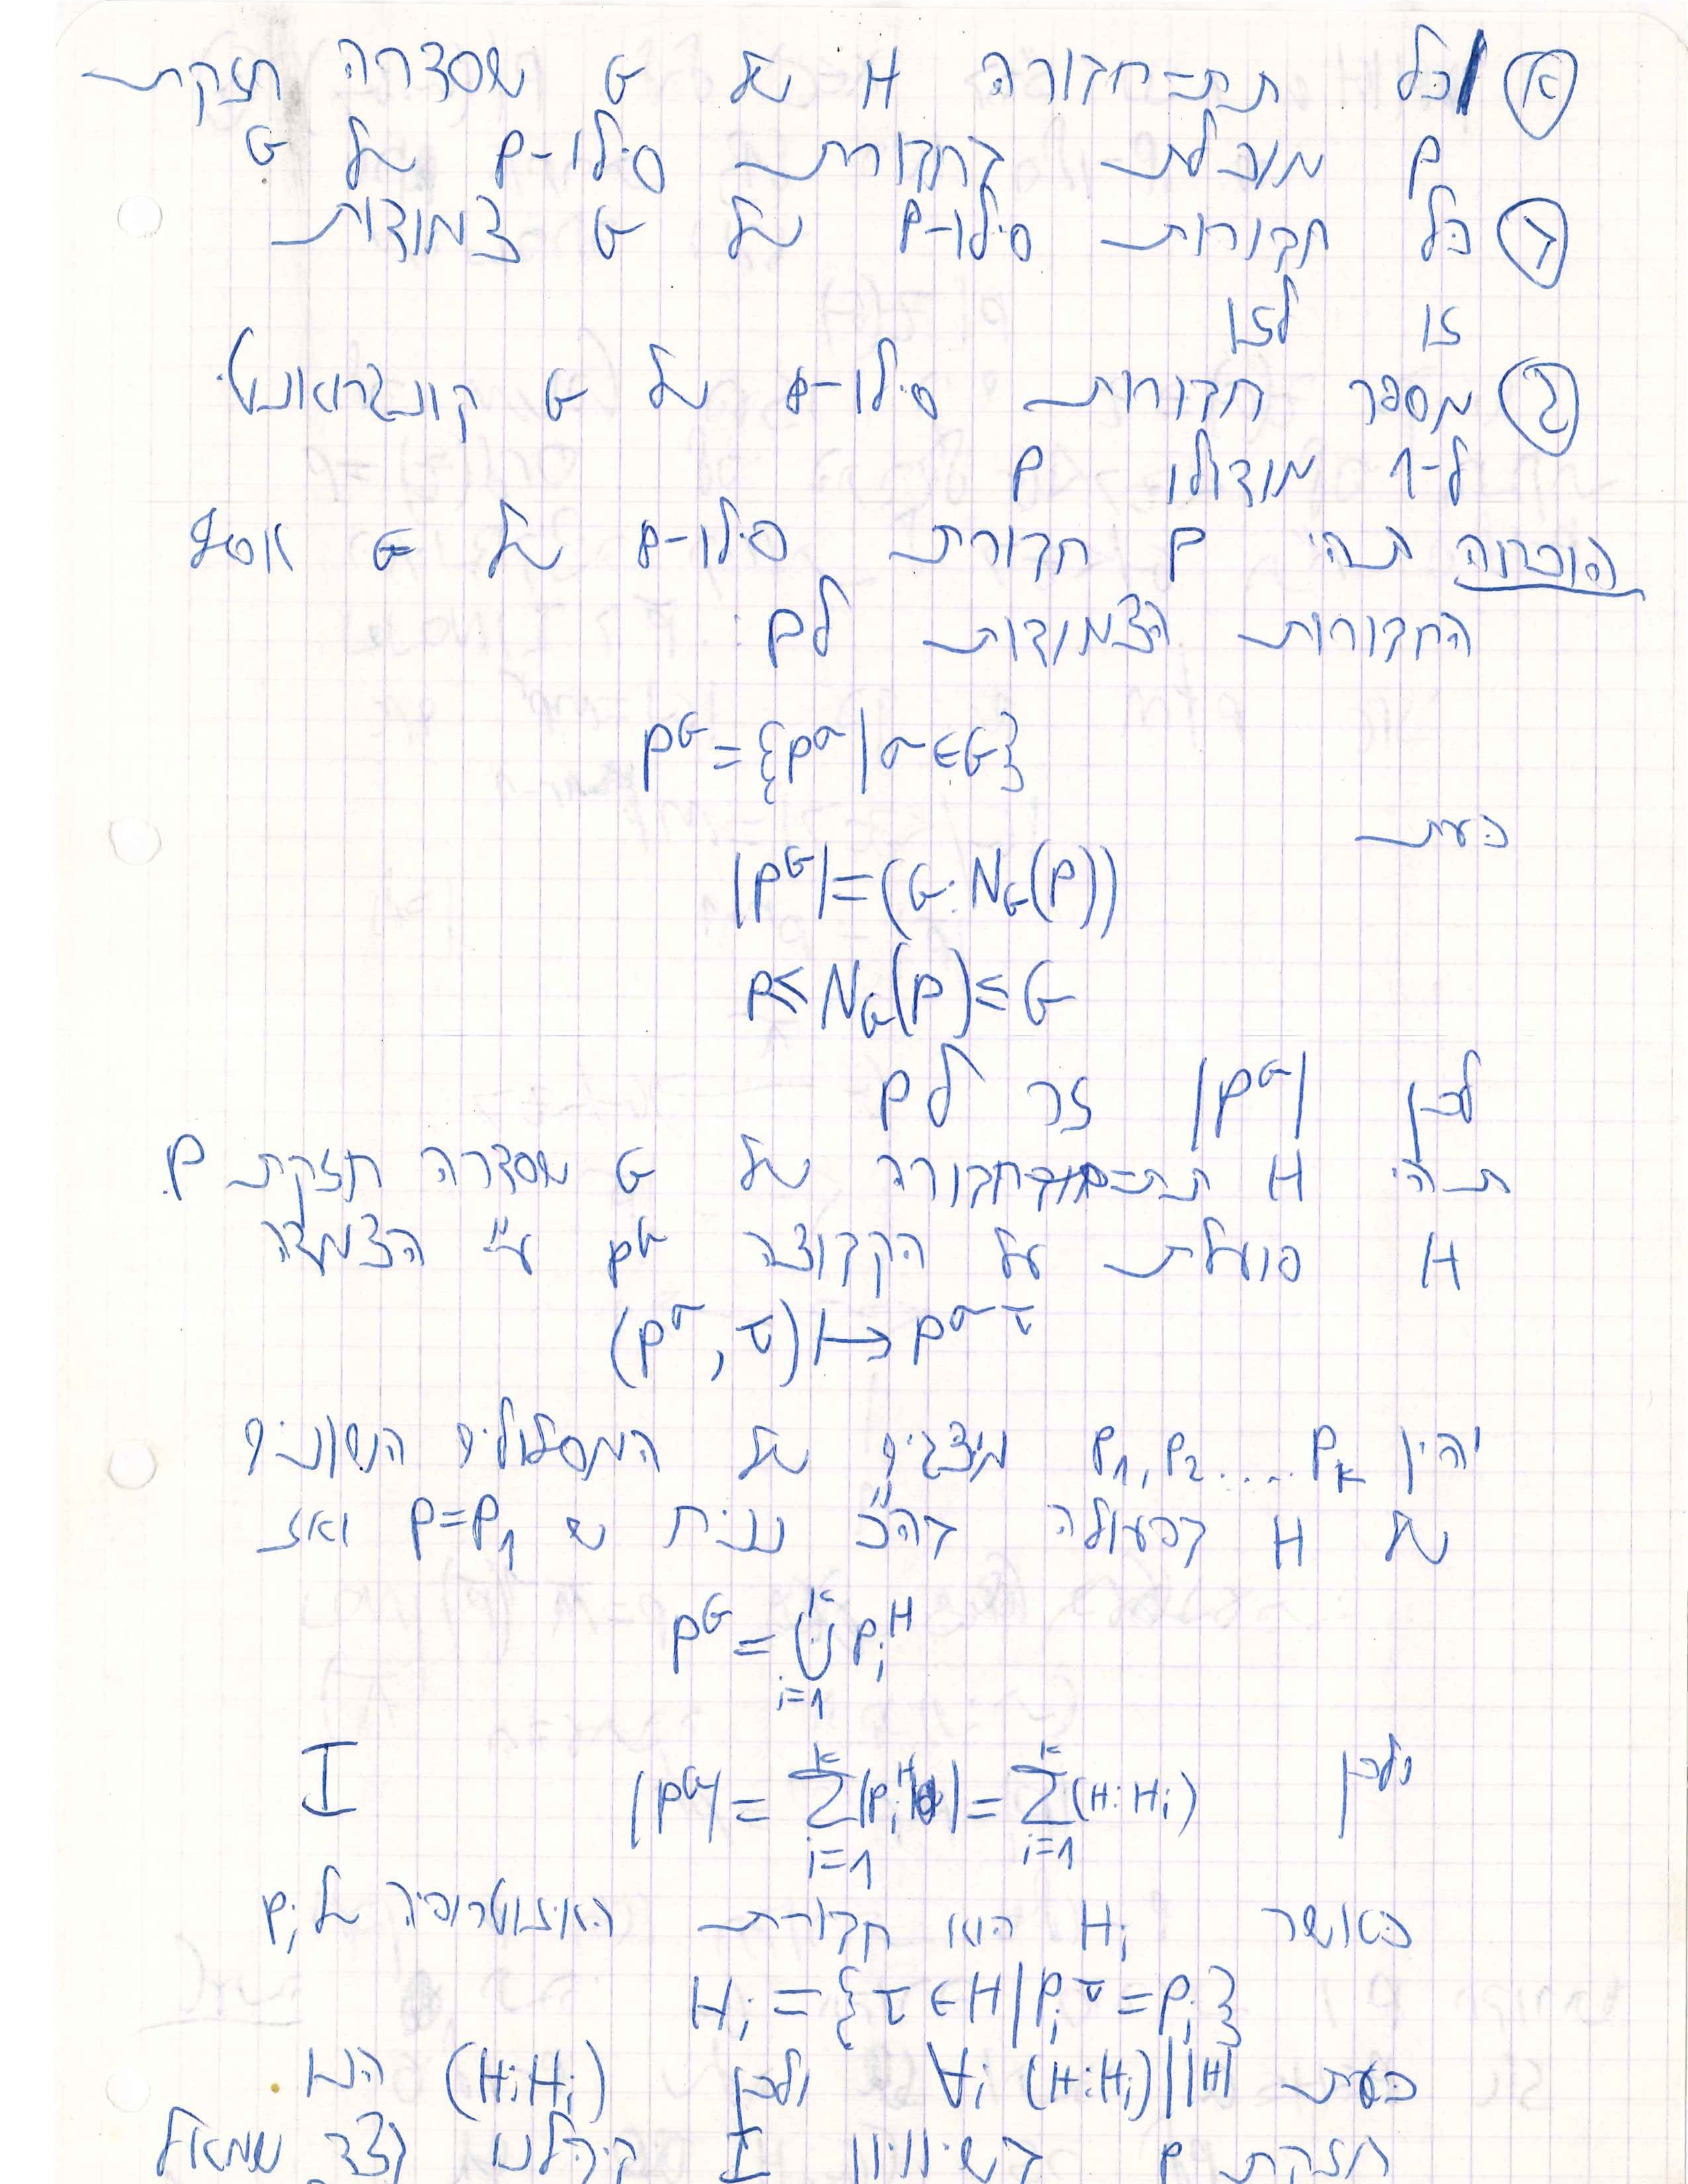 (א) כל תת-חבורה H של G שסדרה חזקת
p מוכלת בחבורת סילו-p של G
(ב) כל חבורות סילו-p של G צמודות
זו לזו
(ג) מספר חבורות סילו-p של G קונגרואנטי
ל-1 מודולו p
הוכחה תהי P חבורת סילו-p של G אוסף
החבורות הצמודות לP:
P^G = {P^σ | σ∈G}
כעת
|P^G| = (G:N_G(P))
P ≤ N_G(P) ≤ G
לכן |P^G| זר לp
תהי H תת-חבורה של G שסדרה חזקת p.
H פועלת על הקבוצה P^G ע"י הצמדה
(P^σ, τ) ↦ P^{στ}
יהיו P_1, P_2 .... P_k מיצגים של המסלולים השונים
של H בפעולה בה"כ נניח ש P=P_1 ואז
P^G = ⋃_{i=1}^k P_i^H
ולכן |P^G| = ∑_{i=1}^k |P_i^H| = ∑_{i=1}^k (H:H_i) I
כאשר H_i היא חבורת האיזוטרופיה של P_i
H_i = {τ∈H | P_i^τ = P_i}
כעת ∀i (H:H_i) | |H| ולכן (H:H_i) הנו
חזקת p בשיוויון I קיבלנו בצד שמאל